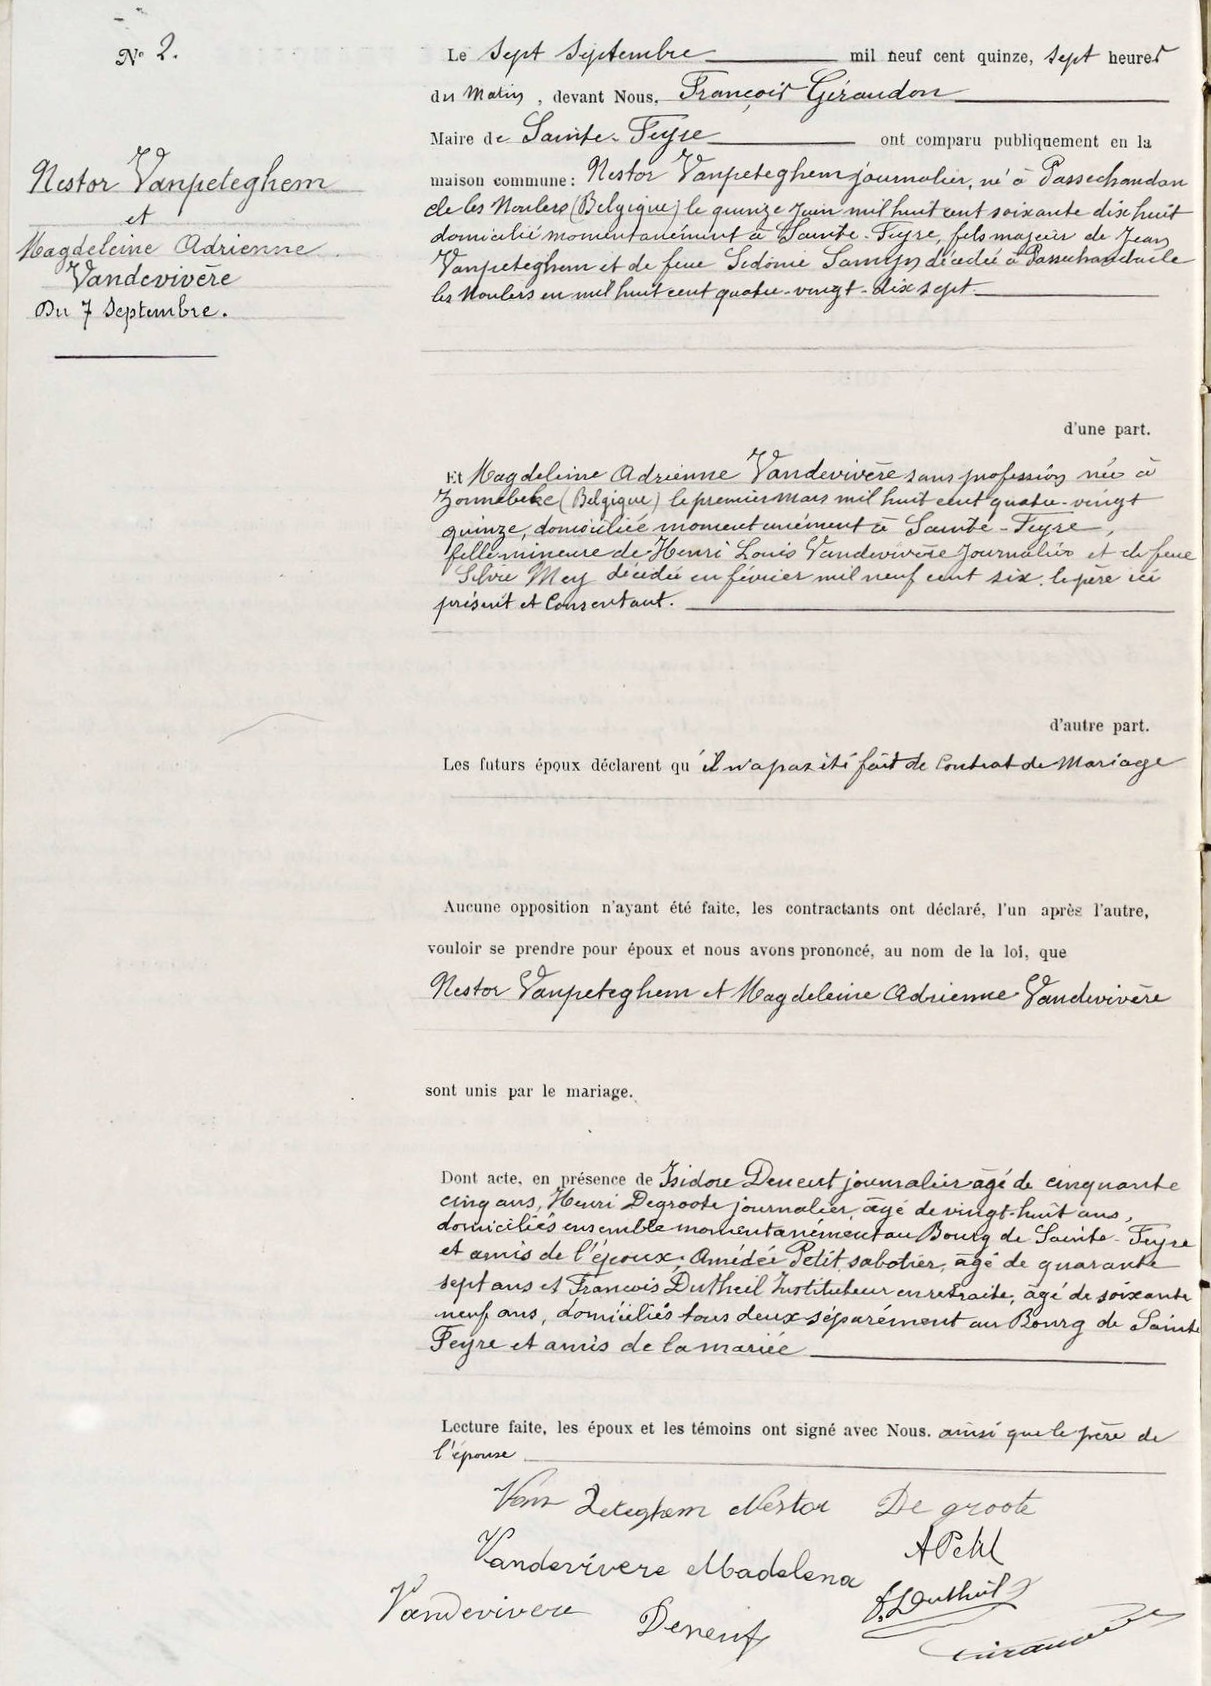 N° 2.
Nestor Vanpeteghem
et
Magdeleine Adrienne
Vandevivère
Du 7 Septembre.
Le sept Septembre mil neuf cent quinze, sept heures
du Matin, devant Nous, François Géraudon
Maire de Sainte-Feyre ont comparu publiquement en la
maison commune: Nestor Vanpeteghem journalier, né à Passechandan
de les Noulers (Belgique) le quinze Juin mil huit cent soixante dix huit
domicilié momentanément à Sainte-Feyre, fils majeur de Jean
Vanpeteghem et de feue Sidonie Samyn décédée à Passechandaele
les Noulers en mil huit cent quatre-vingt-dix sept.
d'une part.
Et Magdeleine Adrienne Vandevivère sans profession née à
Zonnebeke (Belgique) le premier Mars mil huit cent quatre-vingt
quinze, domiciliée momentanément à Sainte-Feyre,
fille mineure de Henri Louis Vandevivère Journalier et de feue
Silvie Mey décédée en février mil neuf cent six. le père ici
présent et Consentant.
d'autre part.
Les futurs époux déclarent qu'il n'a pas été fait de Contrat de Mariage
Aucune opposition n'ayant été faite, les contractants ont déclaré, l'un après l'autre,
vouloir se prendre pour époux et nous avons prononcé, au nom de la loi, que
Nestor Vanpeteghem et Magdeleine Adrienne Vandevivère
sont unis par le mariage.
Dont acte, en présence de Isidore Deneut journalier âgé de cinquante
cinq ans, Henri Degroote journalier âgé de vingt-huit ans,
domiciliés ensemble momentanément au Bourg de Sainte-Feyre
et amis de l'époux; Amédée Petit sabotier, âgé de quarante
sept ans et François Dutheil Instituteur en retraite, âgé de soixante
neuf ans, domiciliés tous deux séparément au Bourg de Sainte
Feyre et amis de la mariée
Lecture faite, les époux et les témoins ont signé avec Nous. ainsi que le père de
l'épouse
Van Peteghem Nestor De groote
Vandevivere Madelena A Petit
Vandevivere Deneut F. Dutheil
Géraudon